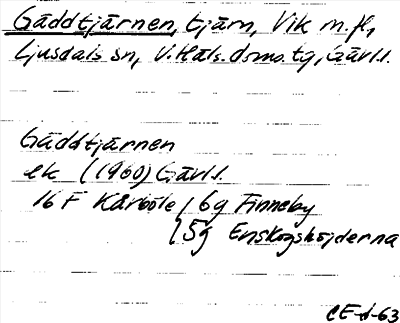 Gäddtjärnen, tjärn, Vik m.fl,
Ljusdals sn, V. Häls. doms. tg, Gävl.l.
Gäddtjärnen
ek (1960) Gävl.l.
16 F Kårböle / 6g Finneby
5g Enskogshöjderna
CE-d-63